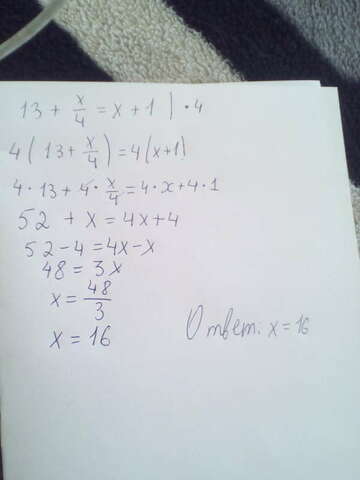 13 + x/4 = x + 1 | · 4
4(13 + x/4) = 4(x+1)
4 · 13 + 4 · x/4 = 4 · x + 4 · 1
52 + x = 4x + 4
52 - 4 = 4x - x
48 = 3x
x = 48/3
x = 16
Ответ: x = 16